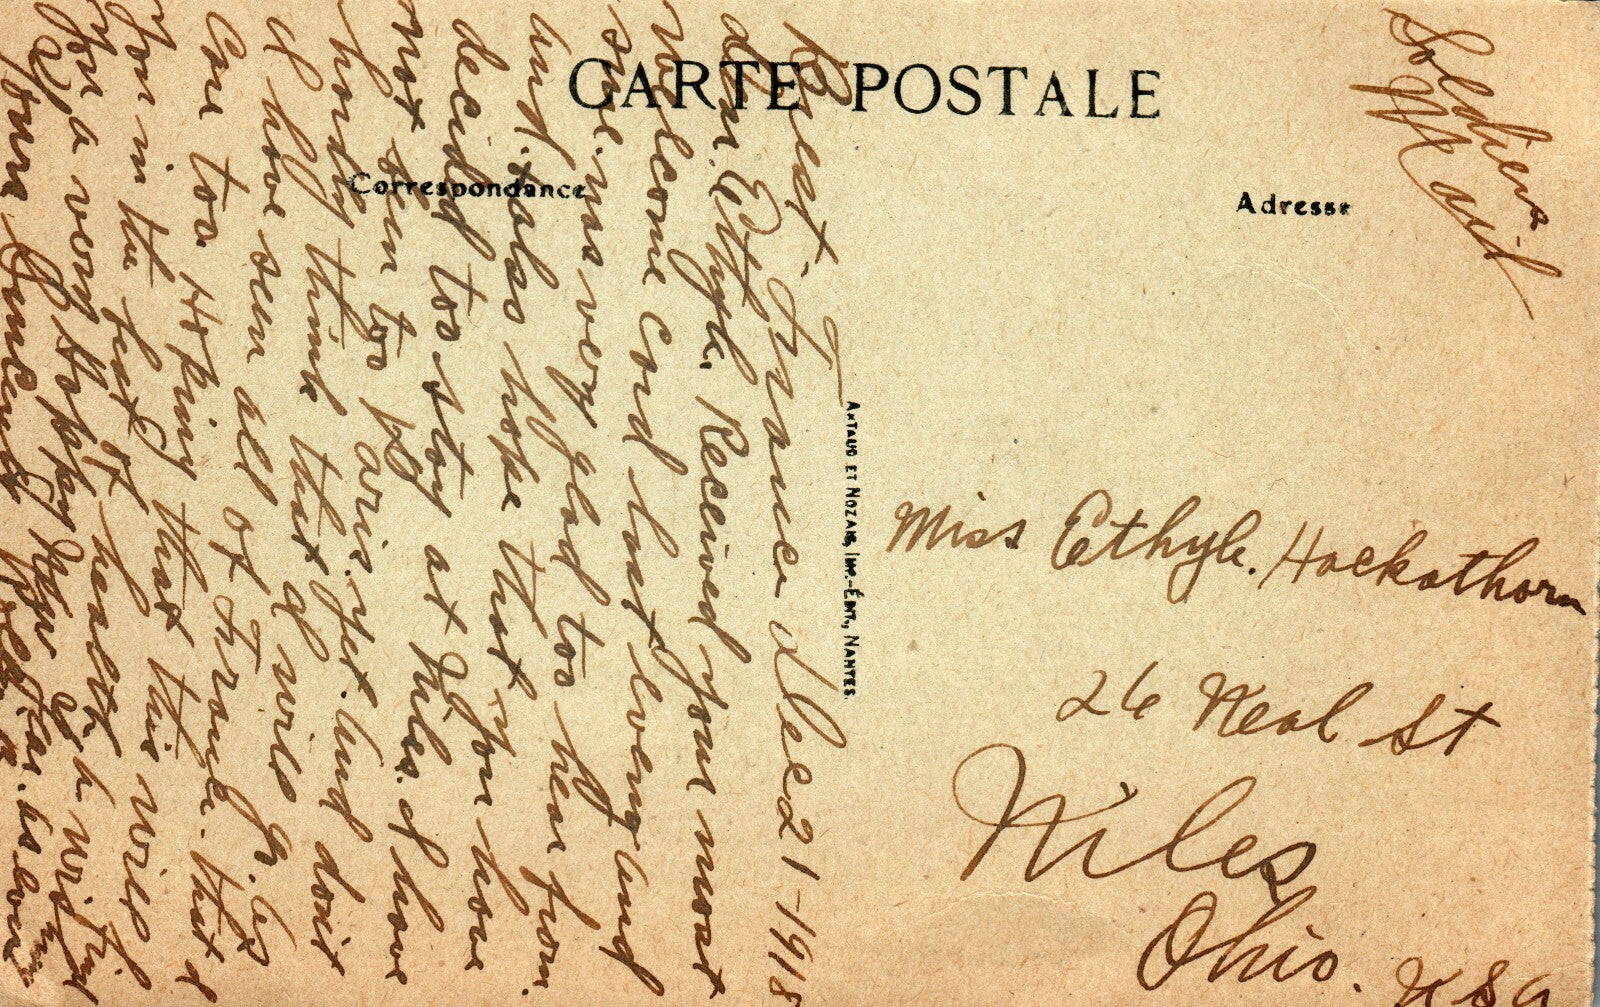 CARTE POSTALE
Correspondance
Adresse
Soldier's
Mail
Miss Ethyle. Hackathorn
26 Neal St
Niles
Ohio. U S A
ARTAUD ET NOZAIS, IMP.-ÉDIT., NANTES.
Brest. France Dec 21-1918
dear Ethyle. Received your most
welcome Card last evening and
sure was very glad too hear from
you. also hope that you have
decided too stay at Niles. I have
not been too Paris. yet. and dont
hardly think that I will
I have seen all of France. that I
Care too. Hoping that this will
find you in the best of health & wishing
you a very Happy New
Your